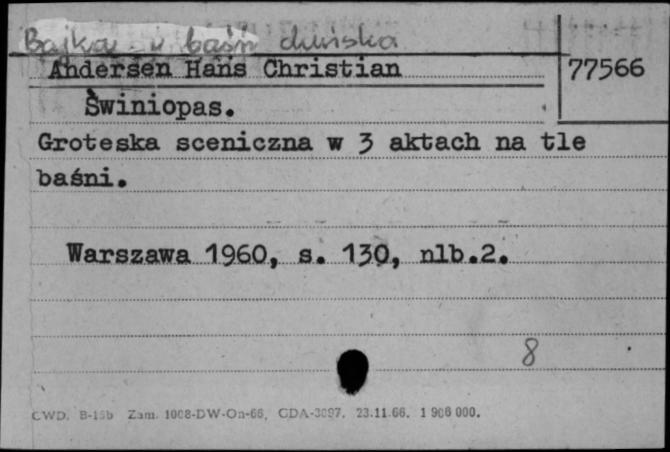 Bajka i baśń duńska
Andersen Hans Christian 77566
Świniopas.
Groteska sceniczna w 3 aktach na tle
baśni.
Warszawa 1960, s. 130, nlb.2.
8
CWD. B-15b Zam. 1008-DW-On-66, GDA-3897. 23.11.66. 1 906 000.